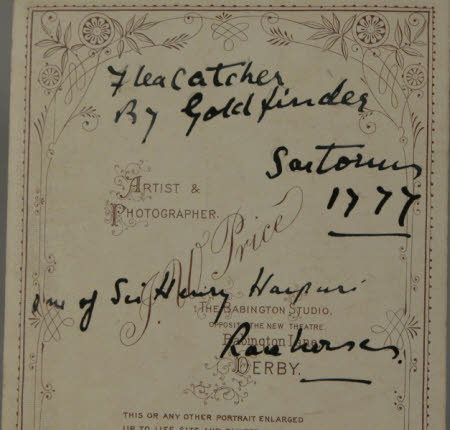 Fleacatcher
By Goldfinder
Sartorius
1777
ARTIST &
PHOTOGRAPHER.
J. W Price
one of Sir Henry Harpurs
THE BABINGTON STUDIO,
OPPOSITE THE NEW THEATRE.
Babington Lane
Race horses.
DERBY.
THIS OR ANY OTHER PORTRAIT ENLARGED
UP TO LIFE SIZE AND